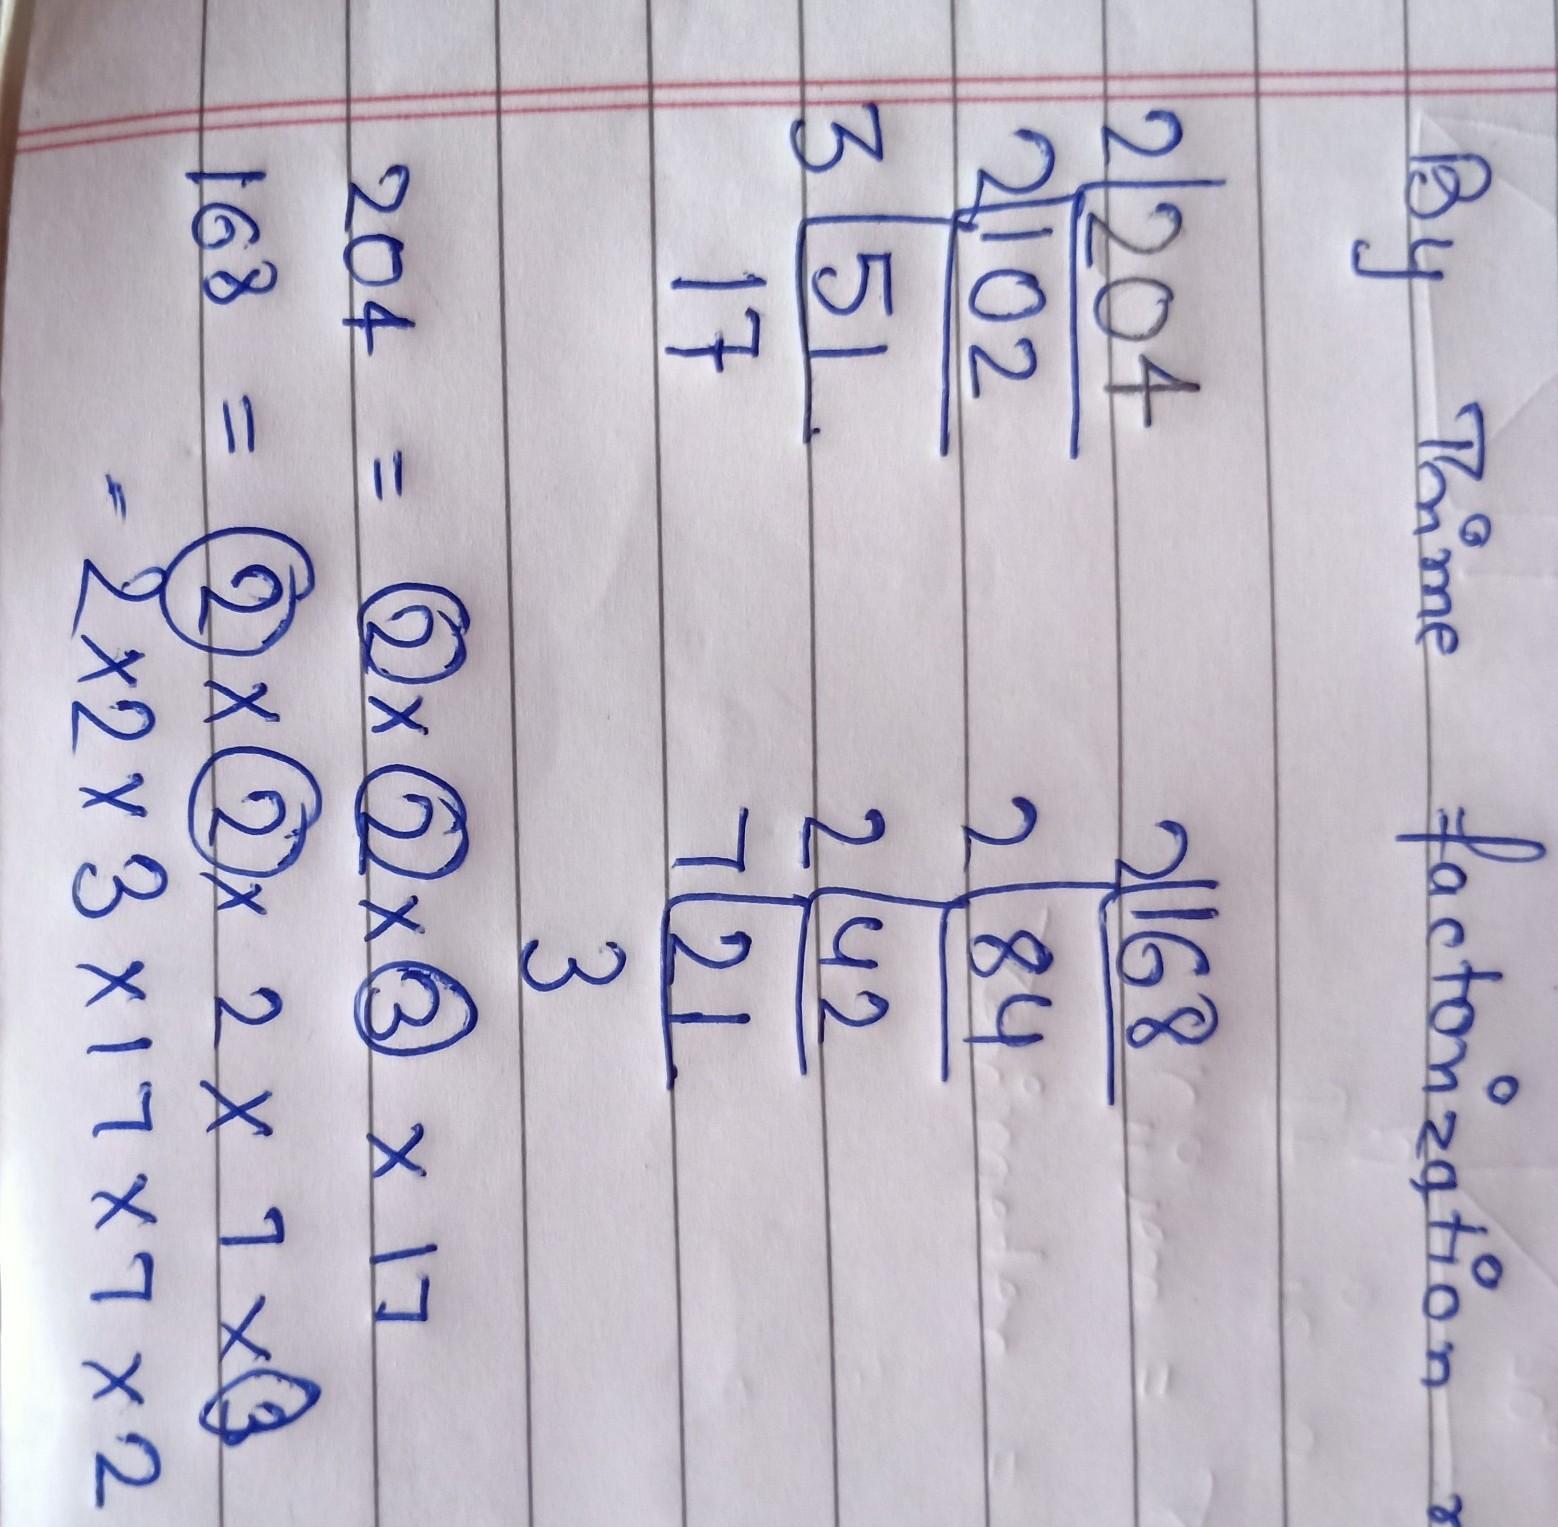 By Prime factorization
2|204 2|168
2|102 2|84
3|51 2|42
17 7|21
3
204 = 2 x 2 x 3 x 17
168 = 2 x 2 x 2 x 7 x 3
= 2 x 2 x 3 x 17 x 7 x 2